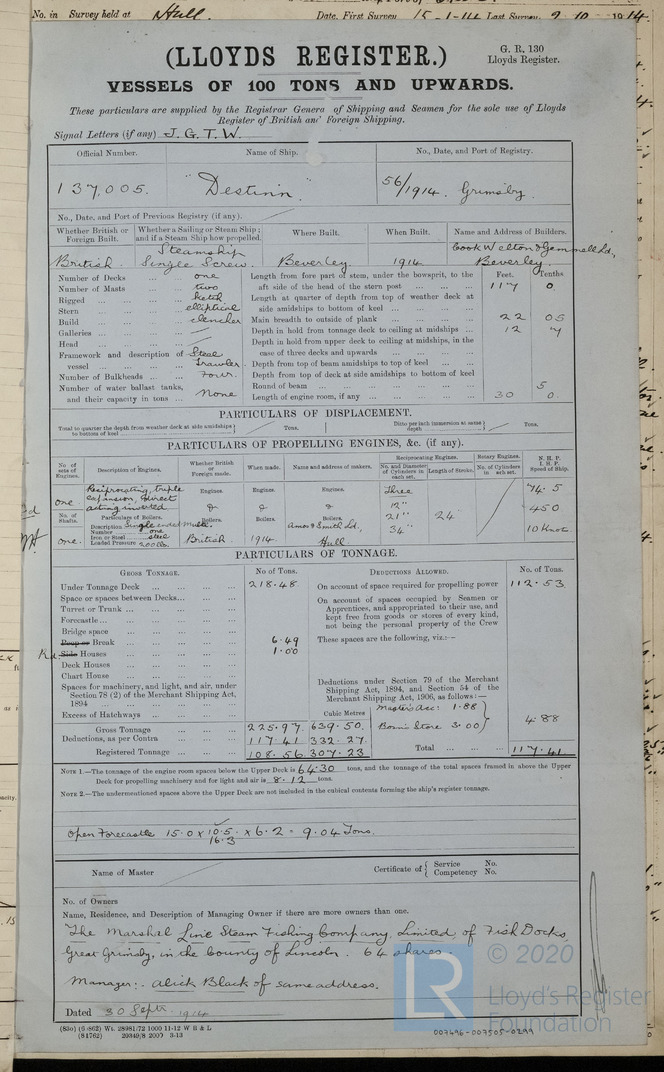 No. in Survey held at Hull. Date, First Survey 15-1-14 Last Survey 9.10 1914.
(LLOYDS REGISTER.)
G. R. 130
Lloyds Register.
VESSELS OF 100 TONS AND UPWARDS.
These particulars are supplied by the Registrar Genera of Shipping and Seamen for the sole use of Lloyds
Register of British and Foreign Shipping.
Signal Letters (if any) J.G.T.W.
Official Number. Name of Ship. No., Date, and Port of Registry.
137,005. "Destinn" 56/1914. Grimsby.
No., Date, and Port of Previous Registry (if any).
Whether British or Foreign Built. Whether a Sailing or Steam Ship; and if a Steam Ship how propelled. Where Built. When Built. Name and Address of Builders.
British. Steamship Single Screw. Beverley. 1914 Cook Welton & Gemmell Ld, Beverley.
Number of Decks ... one
Number of Masts ... two
Rigged ... ketch
Stern ... elliptical
Build ... clencher
Galleries ...
Head ...
Framework and description of vessel ... Steel Trawler
Number of Bulkheads ... Four.
Number of water ballast tanks, and their capacity in tons ... None
Feet. Tenths
Length from fore part of stem, under the bowsprit, to the aft side of the head of the stern post ... 117 0
Length at quarter of depth from top of weather deck at side amidships to bottom of keel ...
Main breadth to outside of plank ... 22 05
Depth in hold from tonnage deck to ceiling at midships ... 12 7
Depth in hold from upper deck to ceiling at midships, in the case of three decks and upwards ...
Depth from top of beam amidships to top of keel ...
Depth from top of deck at side amidships to bottom of keel
Round of beam ... 5
Length of engine room, if any ... 30 0.
PARTICULARS OF DISPLACEMENT.
Total to quarter the depth from weather deck at side amidships to bottom of keel Tons. Ditto per inch immersion at same depth Tons.
PARTICULARS OF PROPELLING ENGINES, &c. (if any).
No. of sets of Engines. Description of Engines. Whether British or Foreign made. When made. Name and address of makers. Reciprocating Engines. Rotary Engines. N.H.P. I.H.P. Speed of Ship.
No. and Diameter of Cylinders in each set. Length of Stroke. No. of Cylinders in each set.
one Reciprocating, triple expansion, direct acting inverted Engines. Engines. Engines. Three 12" 21" 34" 24" 74.5 450 10 Knots
No. of Shafts. Particulars of Boilers. Boilers. Boilers. Boilers.
one. Description Single ended Mult: Number one Iron or Steel steel Loaded Pressure 200 lbs. British. 1914 Amos & Smith Ld, Hull
PARTICULARS OF TONNAGE.
GROSS TONNAGE. No. of Tons. DEDUCTIONS ALLOWED. No. of Tons.
Under Tonnage Deck ... 218.48
Space or spaces between Decks...
Turret or Trunk ...
Forecastle...
Bridge space
Poop or Break ... 6.49
Side Houses ... 1.00
Deck Houses ...
Chart House ...
Spaces for machinery, and light, and air, under Section 78 (2) of the Merchant Shipping Act, 1894 ...
Excess of Hatchways ...
Cubic Metres
Gross Tonnage 225.97 639.50
Deductions, as per Contra 117.41 332.27
Registered Tonnage 108.56 307.23
On account of space required for propelling power 112.53
On account of spaces occupied by Seamen or Apprentices, and appropriated to their use, and kept free from goods or stores of every kind, not being the personal property of the Crew
These spaces are the following, viz:—
Deductions under Section 79 of the Merchant Shipping Act, 1894, and Section 54 of the Merchant Shipping Act, 1906, as follows:—
Master's Acc: 1.88
Bosn's Store 3.00 4.88
Total ... 117.41
NOTE 1.—The tonnage of the engine room spaces below the Upper Deck is 64.30 tons, and the tonnage of the total spaces framed in above the Upper
Deck for propelling machinery and for light and air is 8.12 tons.
NOTE 2.—The undermentioned spaces above the Upper Deck are not included in the cubical contents forming the ship's register tonnage.
Open Forecastle 15.0 x 10.5 / 16.3 x 6.2 = 9.04 Tons.
Name of Master Certificate of { Service No. Competency No.
No. of Owners
Name, Residence, and Description of Managing Owner if there are more owners than one.
The Marshal Line Steam Fishing Company, Limited of Fish Docks,
Great Grimsby, in the County of Lincoln. 64 shares.
Manager:- Alick Black of same address.
Dated 30 Septr. 1914
(830) (6 862) Wt. 28981/72 1000 11-12 W B & L
(81762) 20349/8 2000 3-13
LR © 2020
Lloyd's Register
Foundation
007496-007505-0299